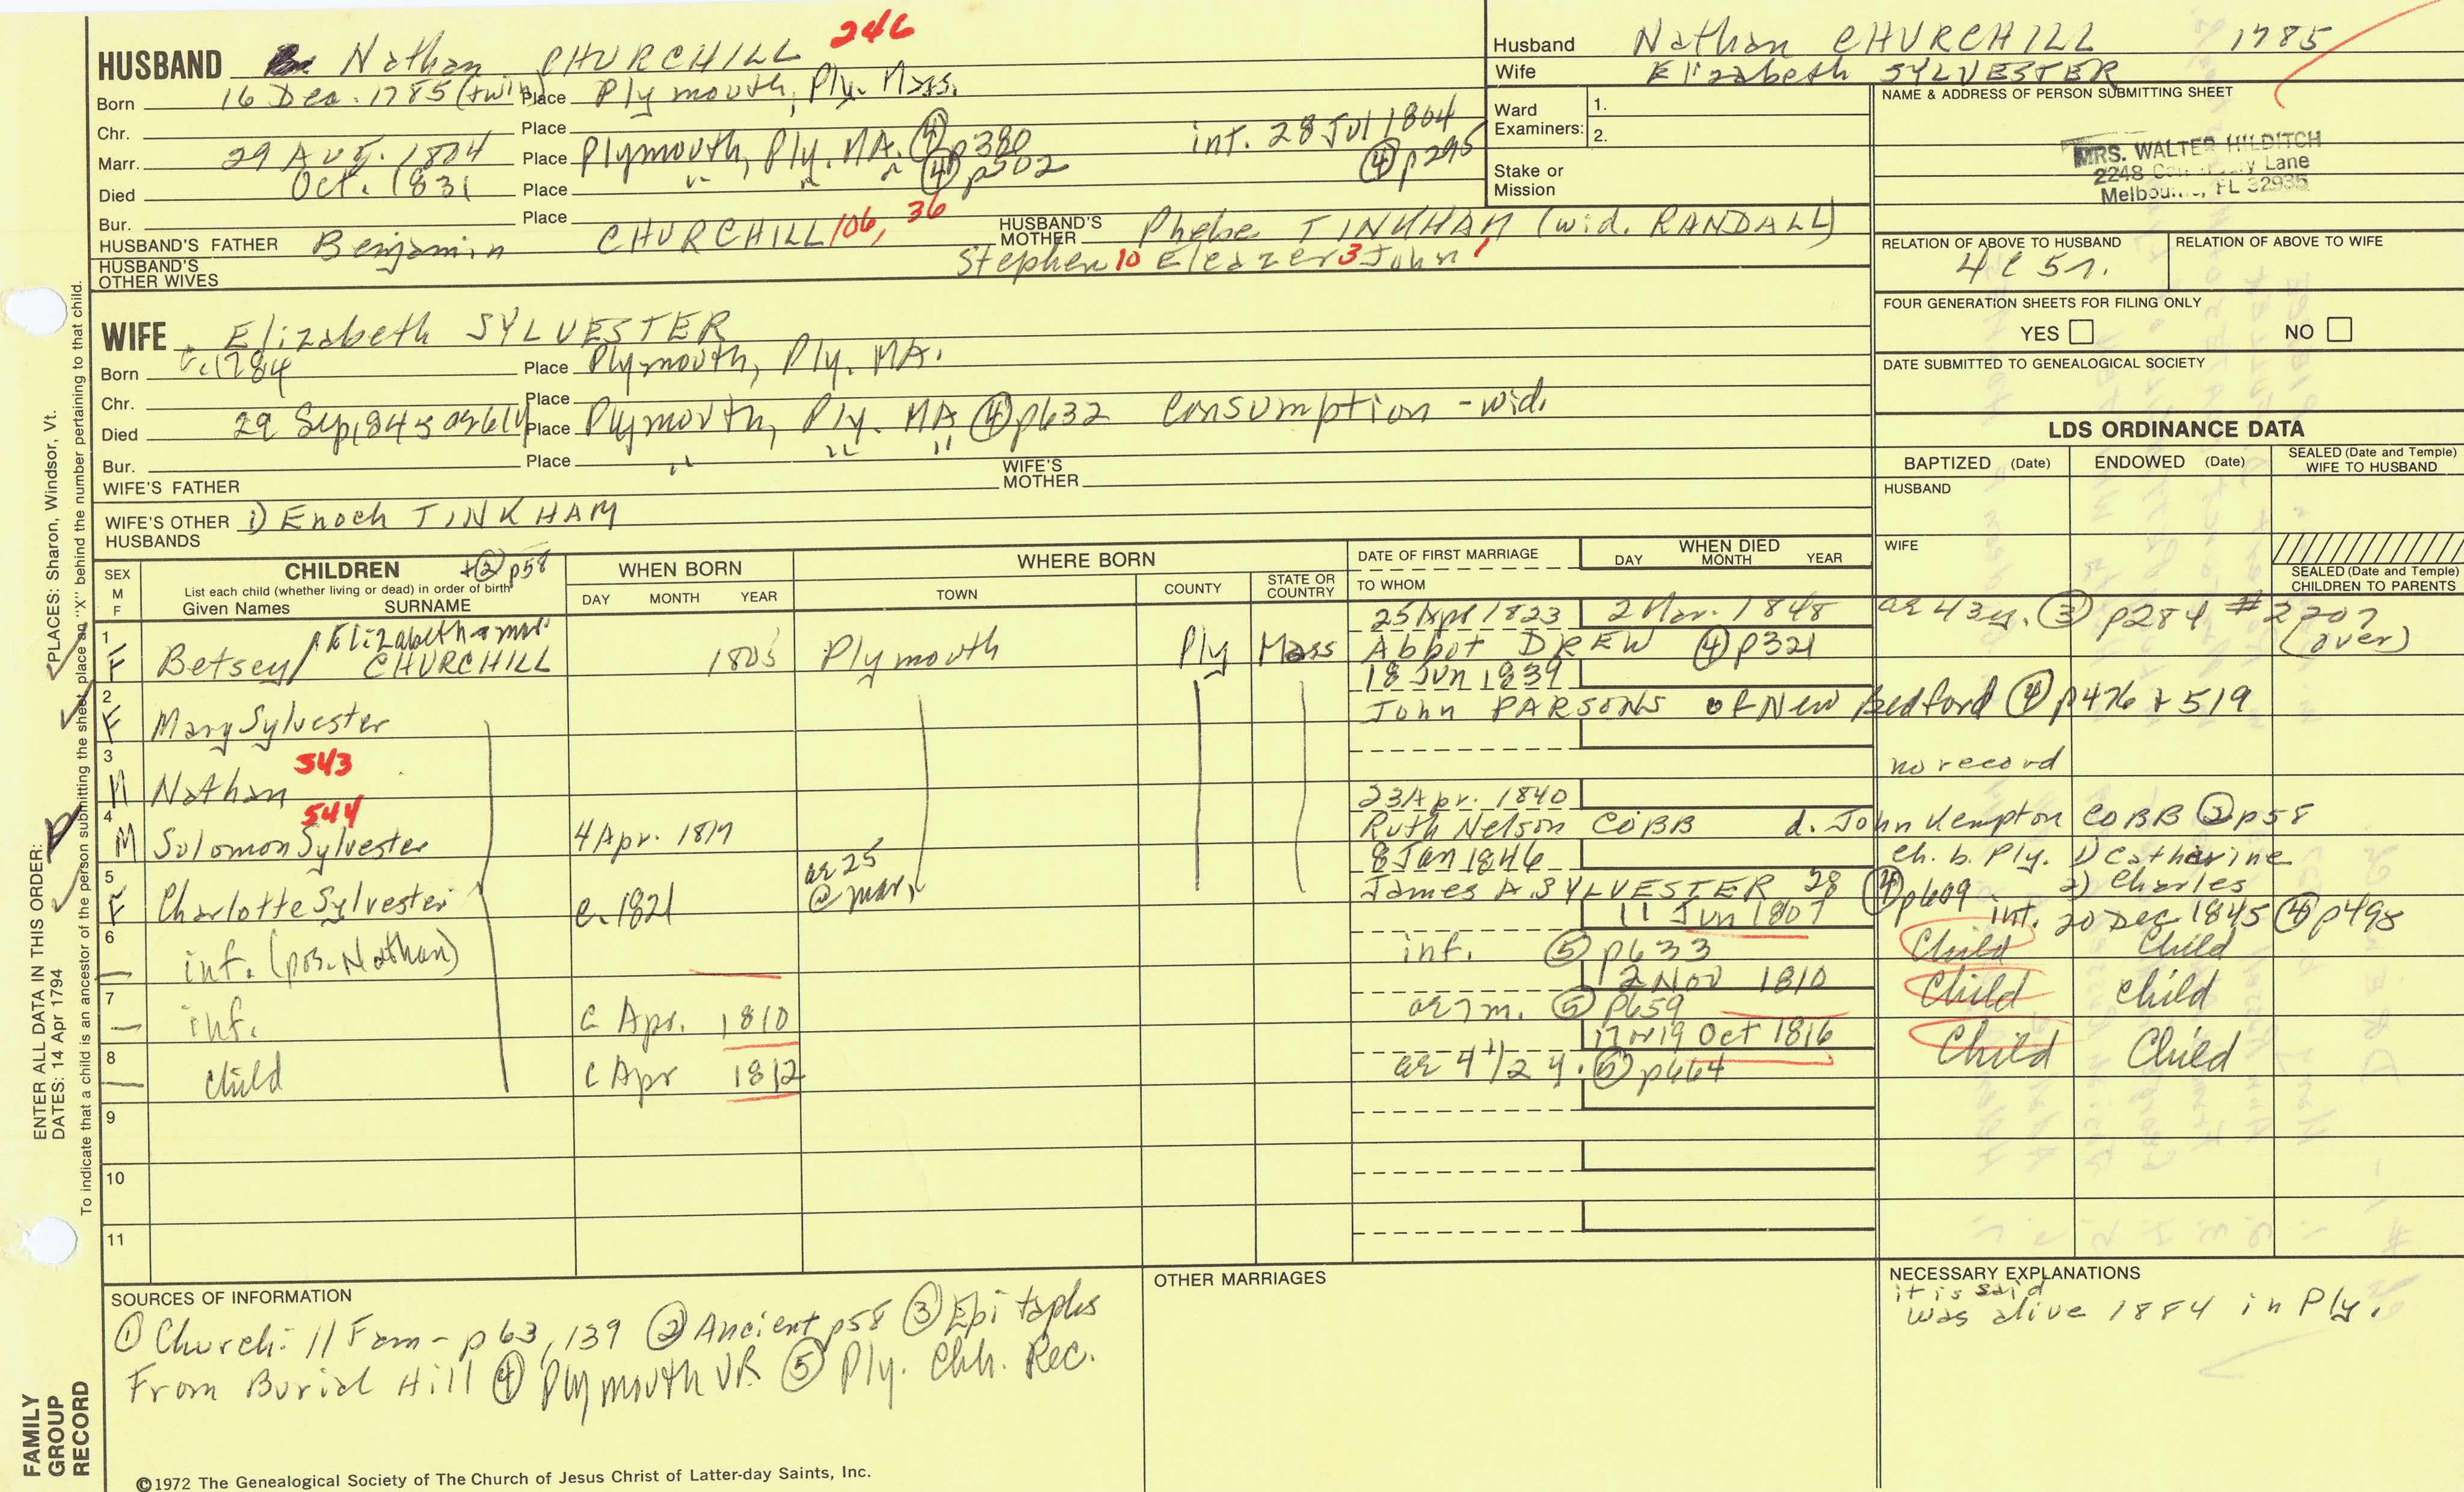 HUSBAND Nathan CHURCHILL 246
Born 16 Dec. 1785 (twin) Place Plymouth, Ply. Mass.
Chr. Place
Marr. 29 Aug. 1804 Place Plymouth, Ply. MA. ④ p380 int. 28 Jul 1804 ④ p295
Died Oct. 1831 Place " " " ④ p502
Bur. Place
HUSBAND'S FATHER Benjamin CHURCHILL 106, 36 HUSBAND'S MOTHER Phebe TINKHAM (wid. RANDALL)
Stephen 10 Eleazer 3 John 1
HUSBAND'S OTHER WIVES
WIFE Elizabeth SYLVESTER
Born c. 1784 Place Plymouth, Ply. MA.
Chr. Place
Died 29 Sep 1845 ae 61y Place Plymouth, Ply. MA ④ p632 Consumption - wid.
Bur. Place " " "
WIFE'S FATHER WIFE'S MOTHER
WIFE'S OTHER HUSBANDS 1) Enoch TINKHAM
Husband Nathan CHURCHILL 1785
Wife Elizabeth SYLVESTER
Ward Examiners: 1.
2.
Stake or Mission
NAME & ADDRESS OF PERSON SUBMITTING SHEET
MRS. WALTER HILDITCH
2248 Lane
FL 32935
RELATION OF ABOVE TO HUSBAND RELATION OF ABOVE TO WIFE
4 C 5 r.
FOUR GENERATION SHEETS FOR FILING ONLY
YES NO
DATE SUBMITTED TO GENEALOGICAL SOCIETY
LDS ORDINANCE DATA
BAPTIZED (Date) ENDOWED (Date) SEALED (Date and Temple) WIFE TO HUSBAND
HUSBAND
WIFE
SEALED (Date and Temple) CHILDREN TO PARENTS
SEX M F
CHILDREN + ② p58
List each child (whether living or dead) in order of birth
Given Names SURNAME
WHEN BORN
DAY MONTH YEAR
WHERE BORN
TOWN COUNTY STATE OR COUNTRY
DATE OF FIRST MARRIAGE
TO WHOM
WHEN DIED
DAY MONTH YEAR
1 25 Apr 1823 2 Mar. 1848 ae 43y. ③ p284 # 2207 (over)
F Betsey / Elizabeth @ mar CHURCHILL 1805 Plymouth Ply Mass Abbot DREW ④ p321
2 18 Jun 1839
F Mary Sylvester John PARSONS of New Bedford ④ p476 + 519
3 543
M Nathan no record
4 544 23 Apr. 1840
M Solomon Sylvester 4 Apr. 1819 Ruth Nelson COBB d. John Kempton COBB ② p58
ch. b. Ply. 1) Catharine
2) Charles
5 ae 25 @ mar. 8 Jan 1846
F Charlotte Sylvester c. 1821 James A. SYLVESTER 28 ④ p609 int. 20 Dec 1845 ④ p498
6 11 Jun 1807
— inf. (pos. Nathan) inf. ⑤ p633 Child Child
7 2 Nov 1810
— inf. c Apr. 1810 ae 7m. ⑤ p659 Child child
8 17 or 19 Oct 1816
— child c Apr 1812 ae 4 1/2 y. ⑤ p664 Child Child
9
10
11
SOURCES OF INFORMATION
① Church: ll Fam - p 63, 139 ② Ancient p58 ③ Epitaphs
From Burial Hill ④ Plymouth VR ⑤ Ply. Chh. Rec.
OTHER MARRIAGES
NECESSARY EXPLANATIONS
it is said
was alive 1884 in Ply.
©1972 The Genealogical Society of The Church of Jesus Christ of Latter-day Saints, Inc.
FAMILY GROUP RECORD
ENTER ALL DATA IN THIS ORDER:
DATES: 14 Apr 1794
PLACES: Sharon, Windsor, Vt.
To indicate that a child is an ancestor of the person submitting the sheet, place an "X" behind the number pertaining to that child.